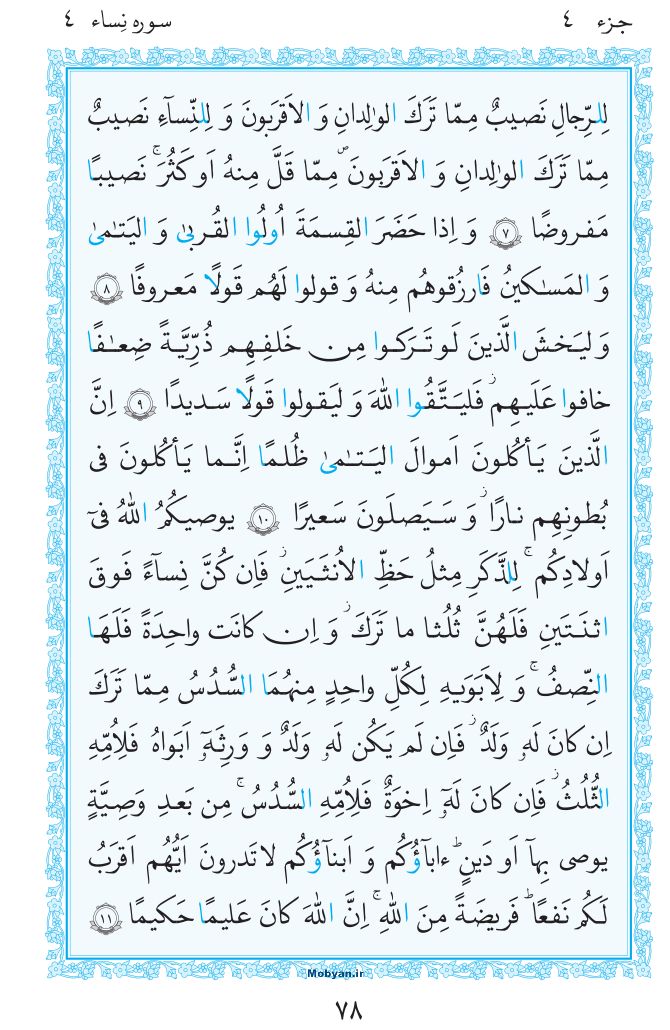 جزء ٤
سوره نساء ٤
لِلرِّجالِ نَصيبٌ مِمّا تَرَكَ الوٰلِدانِ وَ الاَقرَبونَ وَ لِلنِّسآءِ نَصيبٌ
مِمّا تَرَكَ الوٰلِدانِ وَ الاَقرَبونَ مِمّا قَلَّ مِنهُ اَو كَثُرَۚ نَصيبًا
مَفروضًا ﴿٧﴾ وَ اِذا حَضَرَ القِسمَةَ اُولُوا القُربىٰ وَ اليَتٰمىٰ
وَ المَسٰكينُ فَارزُقوهُم مِنهُ وَ قولوا لَهُم قَولًا مَعروفًا ﴿٨﴾
وَ ليَخشَ الَّذينَ لَو تَرَكوا مِن خَلفِهِم ذُرِّيَّةً ضِعٰفًا
خافوا عَلَيهِم فَليَتَّقُوا اللهَ وَ ليَقولوا قَولًا سَديدًا ﴿٩﴾ اِنَّ
الَّذينَ يَأكُلونَ اَموالَ اليَتٰمىٰ ظُلمًا اِنَّما يَأكُلونَ فى
بُطونِهِم نارًا وَ سَيَصلَونَ سَعيرًا ﴿١٠﴾ يوصيكُمُ اللهُ فىٓ
اَولادِكُمۚ لِلذَّكَرِ مِثلُ حَظِّ الاُنثَيَينِ فَاِن كُنَّ نِساءً فَوقَ
اثنَتَينِ فَلَهُنَّ ثُلُثا ما تَرَكَ وَ اِن كانَت واحِدَةً فَلَهَا
النِّصفُۚ وَ لِاَبَوَيهِ لِكُلِّ واحِدٍ مِنهُمَا السُّدُسُ مِمّا تَرَكَ
اِن كانَ لَهۥ وَلَدٌ فَاِن لَم يَكُن لَهۥ وَلَدٌ وَ وَرِثَهۥٓ اَبَواهُ فَلِاُمِّهِ
الثُّلُثُ فَاِن كانَ لَهۥٓ اِخوَةٌ فَلِاُمِّهِ السُّدُسُۚ مِن بَعدِ وَصِيَّةٍ
يوصى بِهآ اَو دَينٍ ءابآؤُكُم وَ اَبنآؤُكُم لا تَدرونَ اَيُّهُم اَقرَبُ
لَكُم نَفعًا فَريضَةً مِنَ اللهِۚ اِنَّ اللهَ كانَ عَليمًا حَكيمًا ﴿١١﴾
Mobyan.ir
٧٨